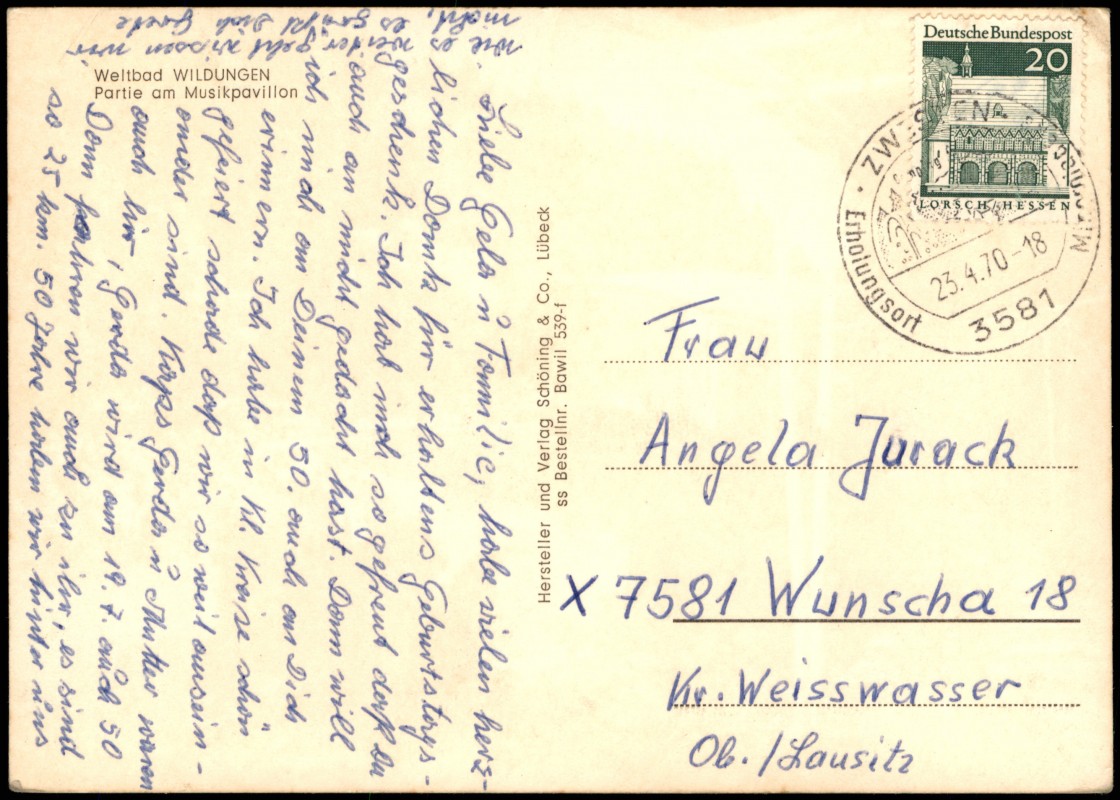 Weltbad WILDUNGEN
Partie am Musikpavillon
Liebe Gela u Familie, habe vielen herz-
lichen Dank für erhaltens Geburtstags-
geschenk. Ich hab mich so gefreut daß Du
auch an mich gedacht hast. Dann will
ich mich an Deinen 50. auch an Dich
erinnern. Ich habe in Kl. Kreise schön
gefeiert schade daß wir so weit ausein-
ander sind. Karps Gerda u Mutter waren
auch hier, Gerda wird am 19.7. auch 50
Dann fahren wir auch zu ihr, es sind
so 25 km. 50 Jahre haben wir hinter uns
wie es weiter geht wissen wir
nicht, es grüßt Dich Grete
Hersteller und Verlag Schöning & Co., Lübeck
ss Bestellnr. Bawil 539-f
Deutsche Bundespost
20
LORSCH/HESSEN
ZWESTEN
Erholungsort
23.4.70-18
3581
Frau
Angela Jurack
X 7581 Wunscha 18
Kr. Weisswasser
Ob./Lausitz